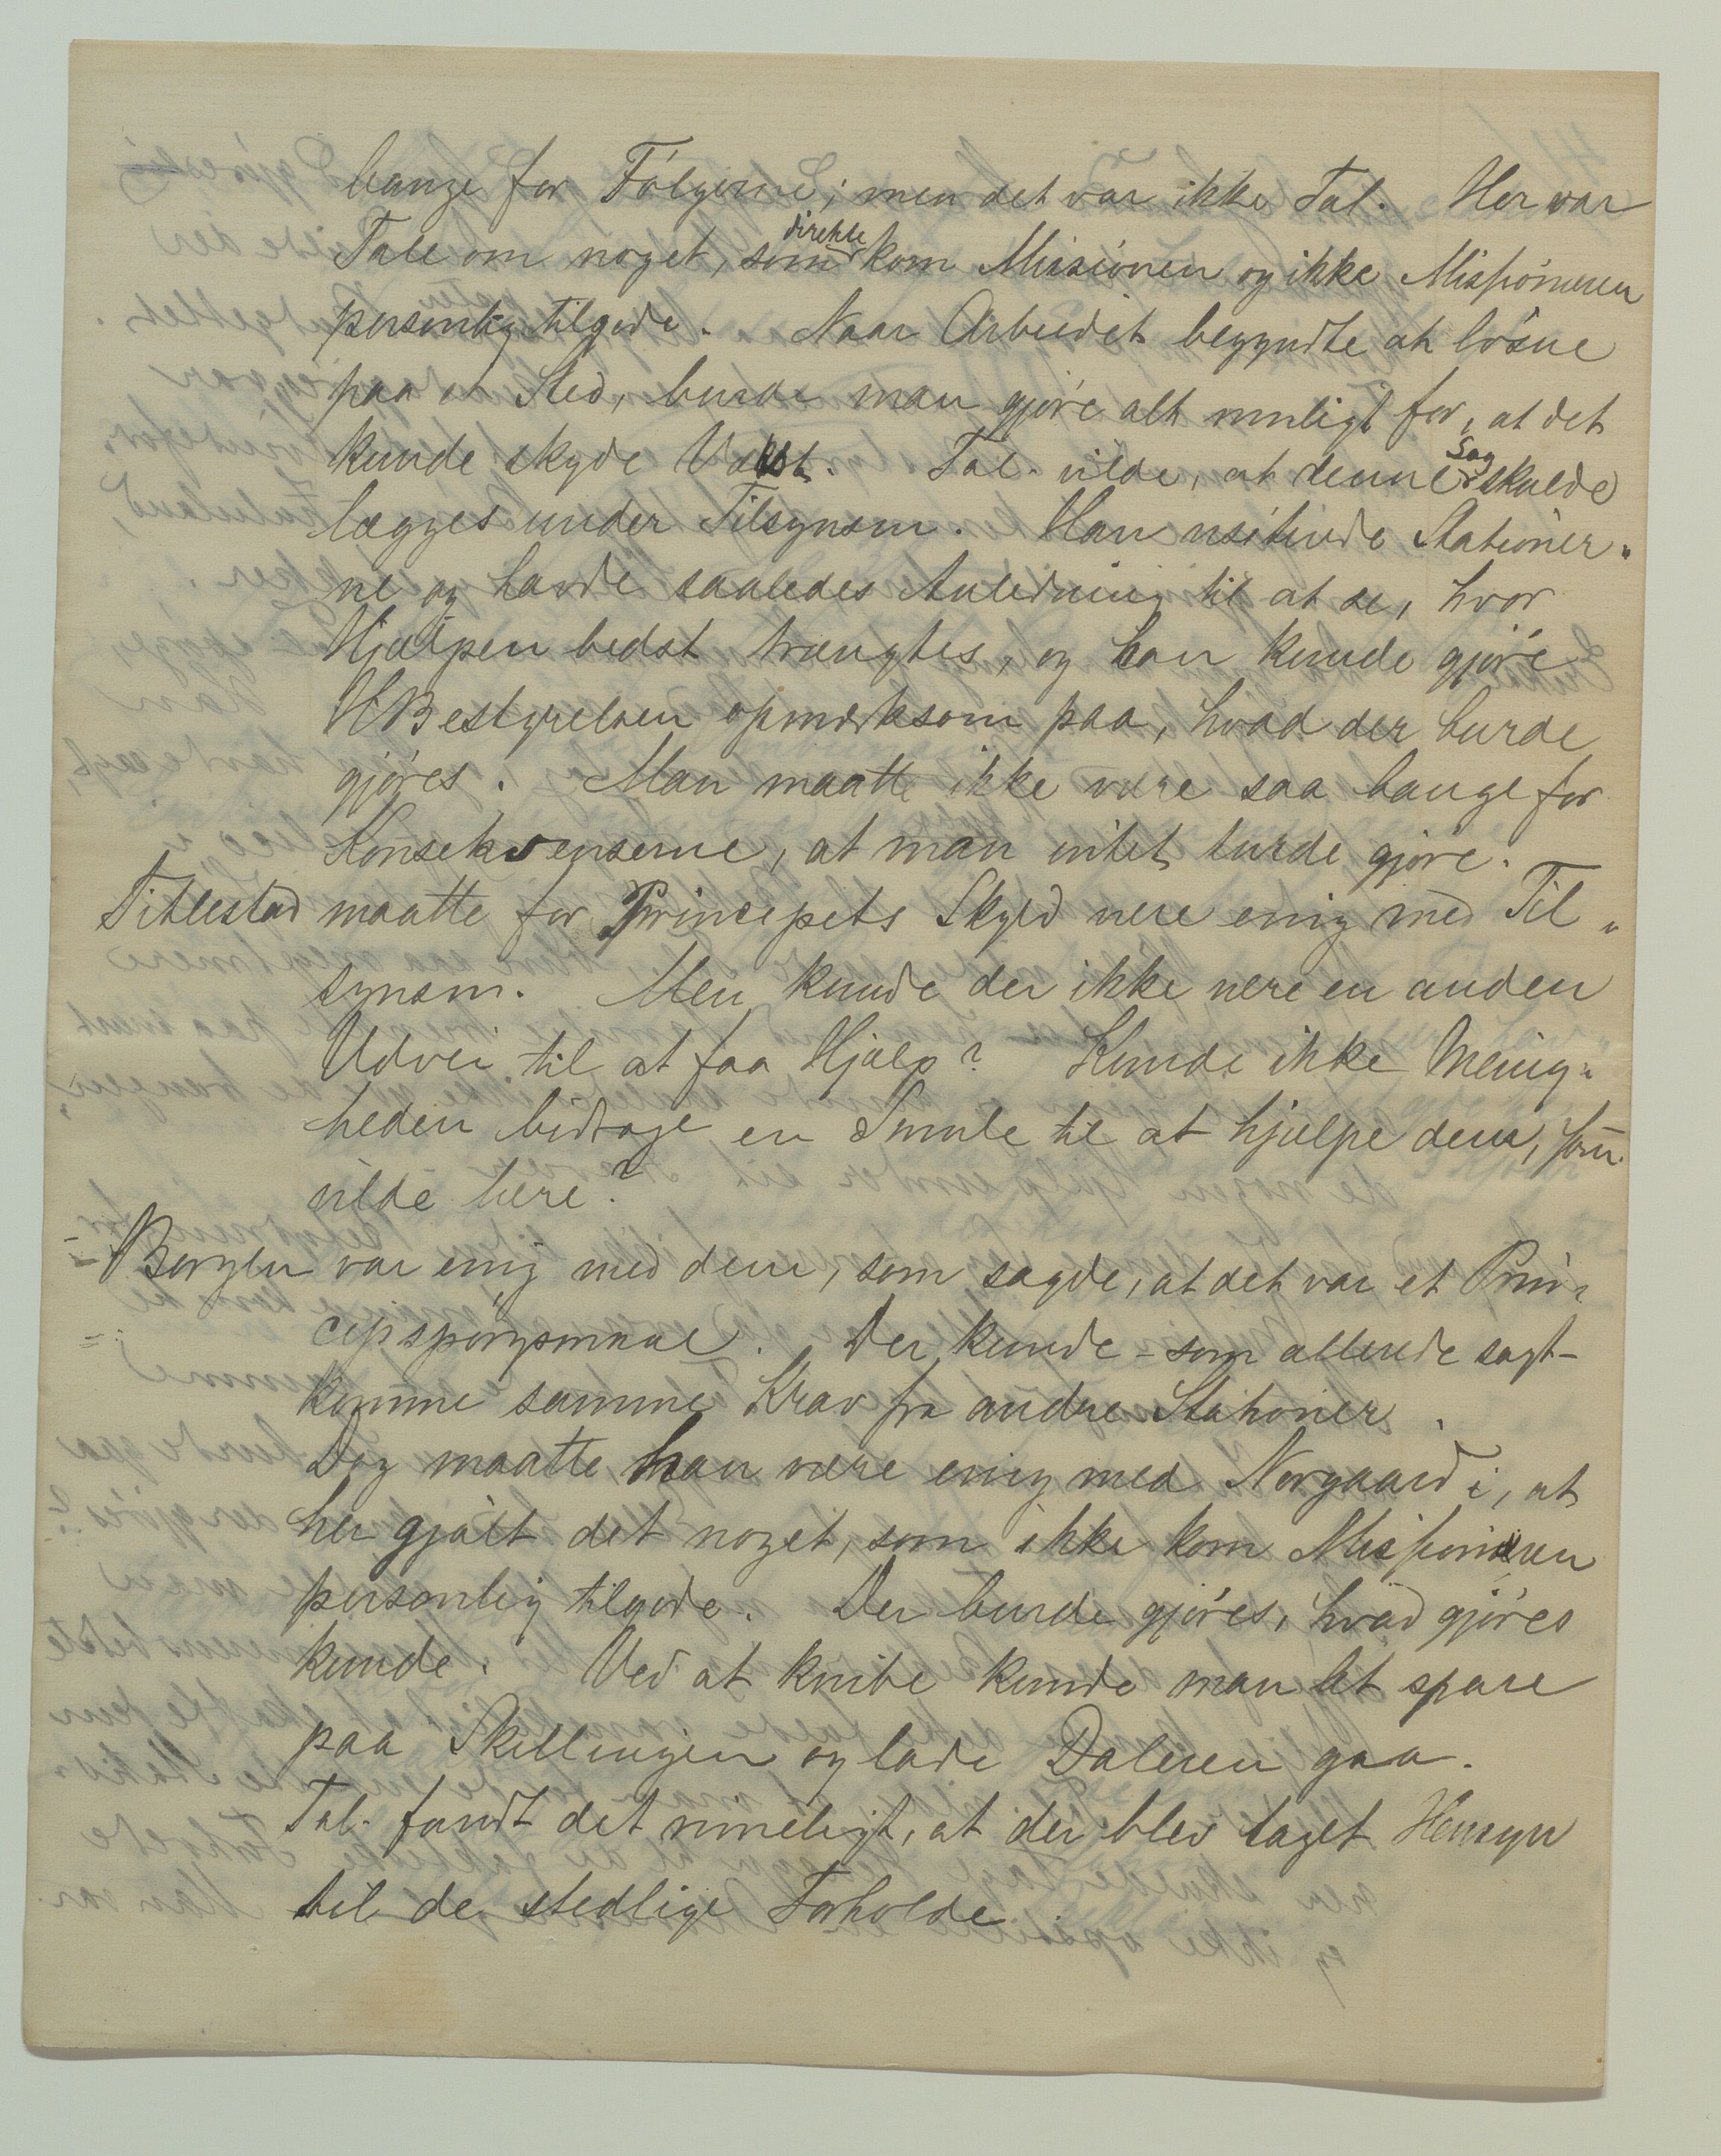 bange for Følgerne; men det var ikke Tal. Her var
Tale om noget, som direkte kom Missionen og ikke Missionæren
personlig tilgode. Naar Arbeidet begyndte at løsne
paa et Sted, burde man gjøre alt muligt for, at det
kunde skyde Vækst. Tal. vilde, at denne Sag skulde
lægges under Tilsynsm. Han visiterede Stationer-
ne og havde saaledes Anledning til at se, hvor
Hjælpen bedst trængtes, og han kunde gjøre
HBestyrelsen opmerksom paa, hvad der burde
gjøres. Man maatte ikke være saa bange for
Konsekvenserne, at man intet turde gjøre.
Titlestad maatte for Princepets Skyld være enig med Til-
synsm. Men kunde der ikke være en anden
Udvei til at faa Hjælp? Kunde ikke Menig-
heden bidrage en Smule til at hjælpe dem, som
vilde lære?
Borgen var enig med dem, som sagde, at det var et Prin-
cipspørgsmaal. Der kunde – som allerede sagt –
komme samme Krav fra andre Stationer.
Dog maatte han være enig med Norgaard i, at
her gjalt det noget, som ikke kom Missionæren
personlig tilgode. Der burde gjøres, hvad gjøres
kunde. Ved at knibe kunde man let spare
paa Skillingen og lade Daleren gaa.
Tal. fandt det rimeligt, at der blev taget Hensyn
til de stedlige Forholde.